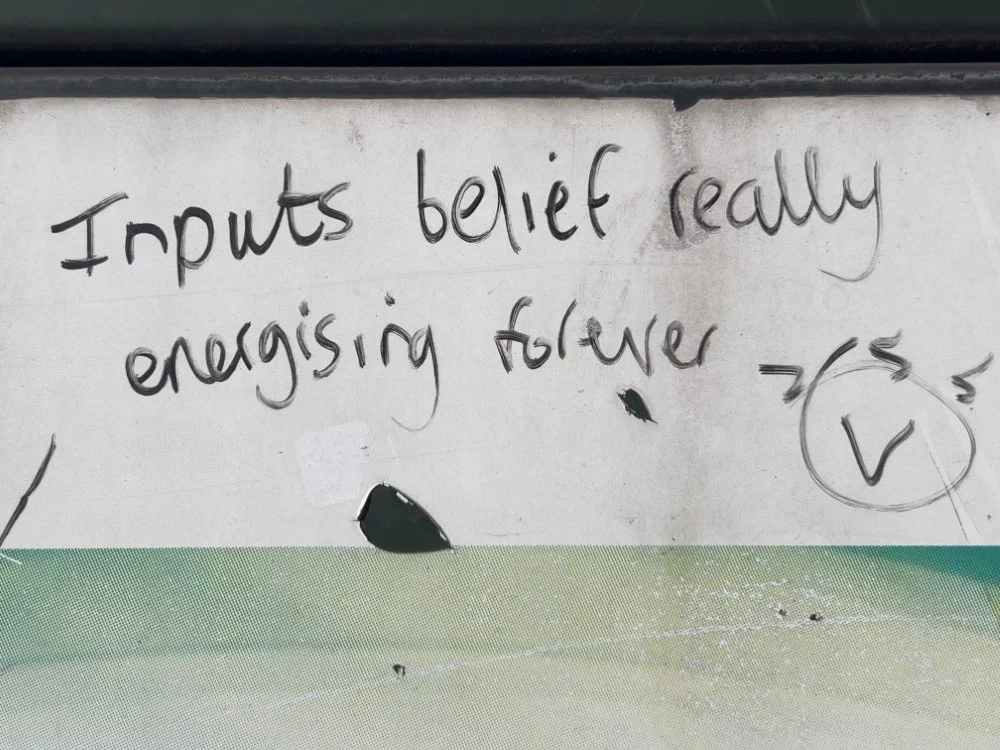 Inputs belief really
energising forever
V